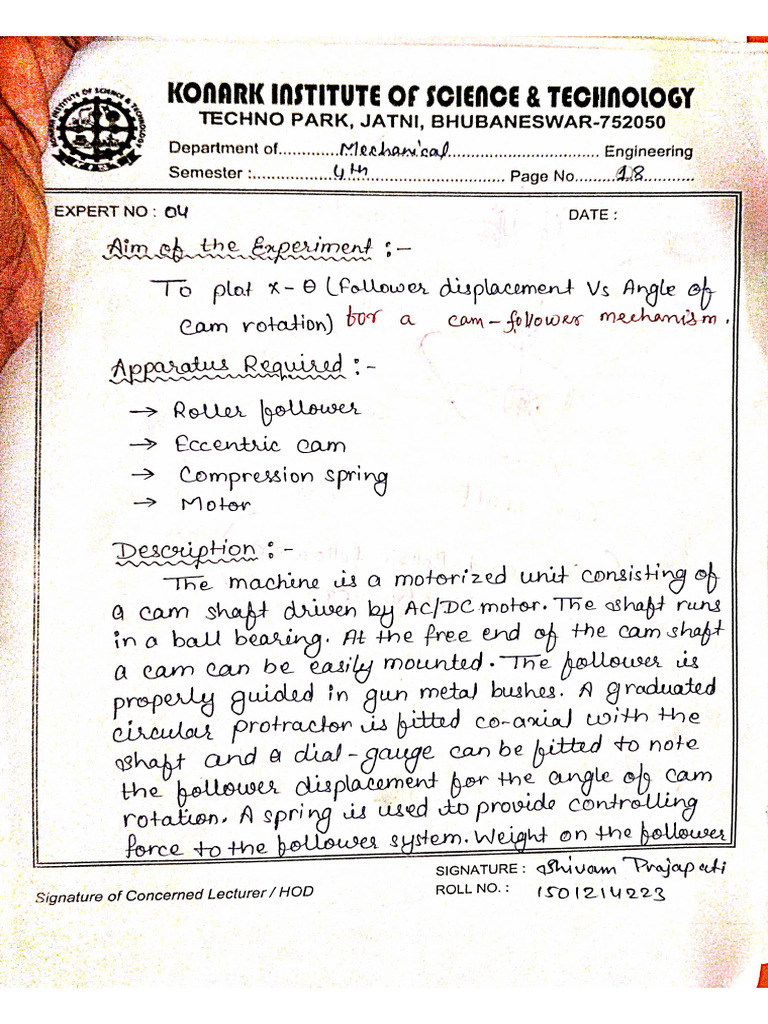 KONARK INSTITUTE OF SCIENCE & TECHNOLOGY
TECHNO PARK, JATNI, BHUBANESWAR-752050
Department of.............Mechanical................................. Engineering
Semester :..................4th.............................. Page No.........18...........
EXPERT NO : 04 DATE :
Aim of the Experiment :-
To plot x-θ (follower displacement Vs Angle of
cam rotation) for a cam-follower mechanism.
Apparatus Required :-
→ Roller follower
→ Eccentric cam
→ Compression spring
→ Motor
Description :-
The machine is a motorized unit consisting of
a cam shaft driven by AC/DC motor. The shaft runs
in a ball bearing. At the free end of the cam shaft
a cam can be easily mounted. The follower is
properly guided in gun metal bushes. A graduated
circular protractor is fitted co-axial with the
shaft and a dial-gauge can be fitted to note
the follower displacement for the angle of cam
rotation. A spring is used to provide controlling
force to the follower system. Weight on the follower
SIGNATURE : Shivam Prajapati
Signature of Concerned Lecturer / HOD ROLL NO. : 1501214223